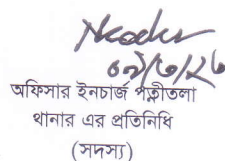 ০৯/৬/২৬
অফিসার ইনচার্জ পত্নীতলা
থানার এর প্রতিনিধি
(সদস্য)